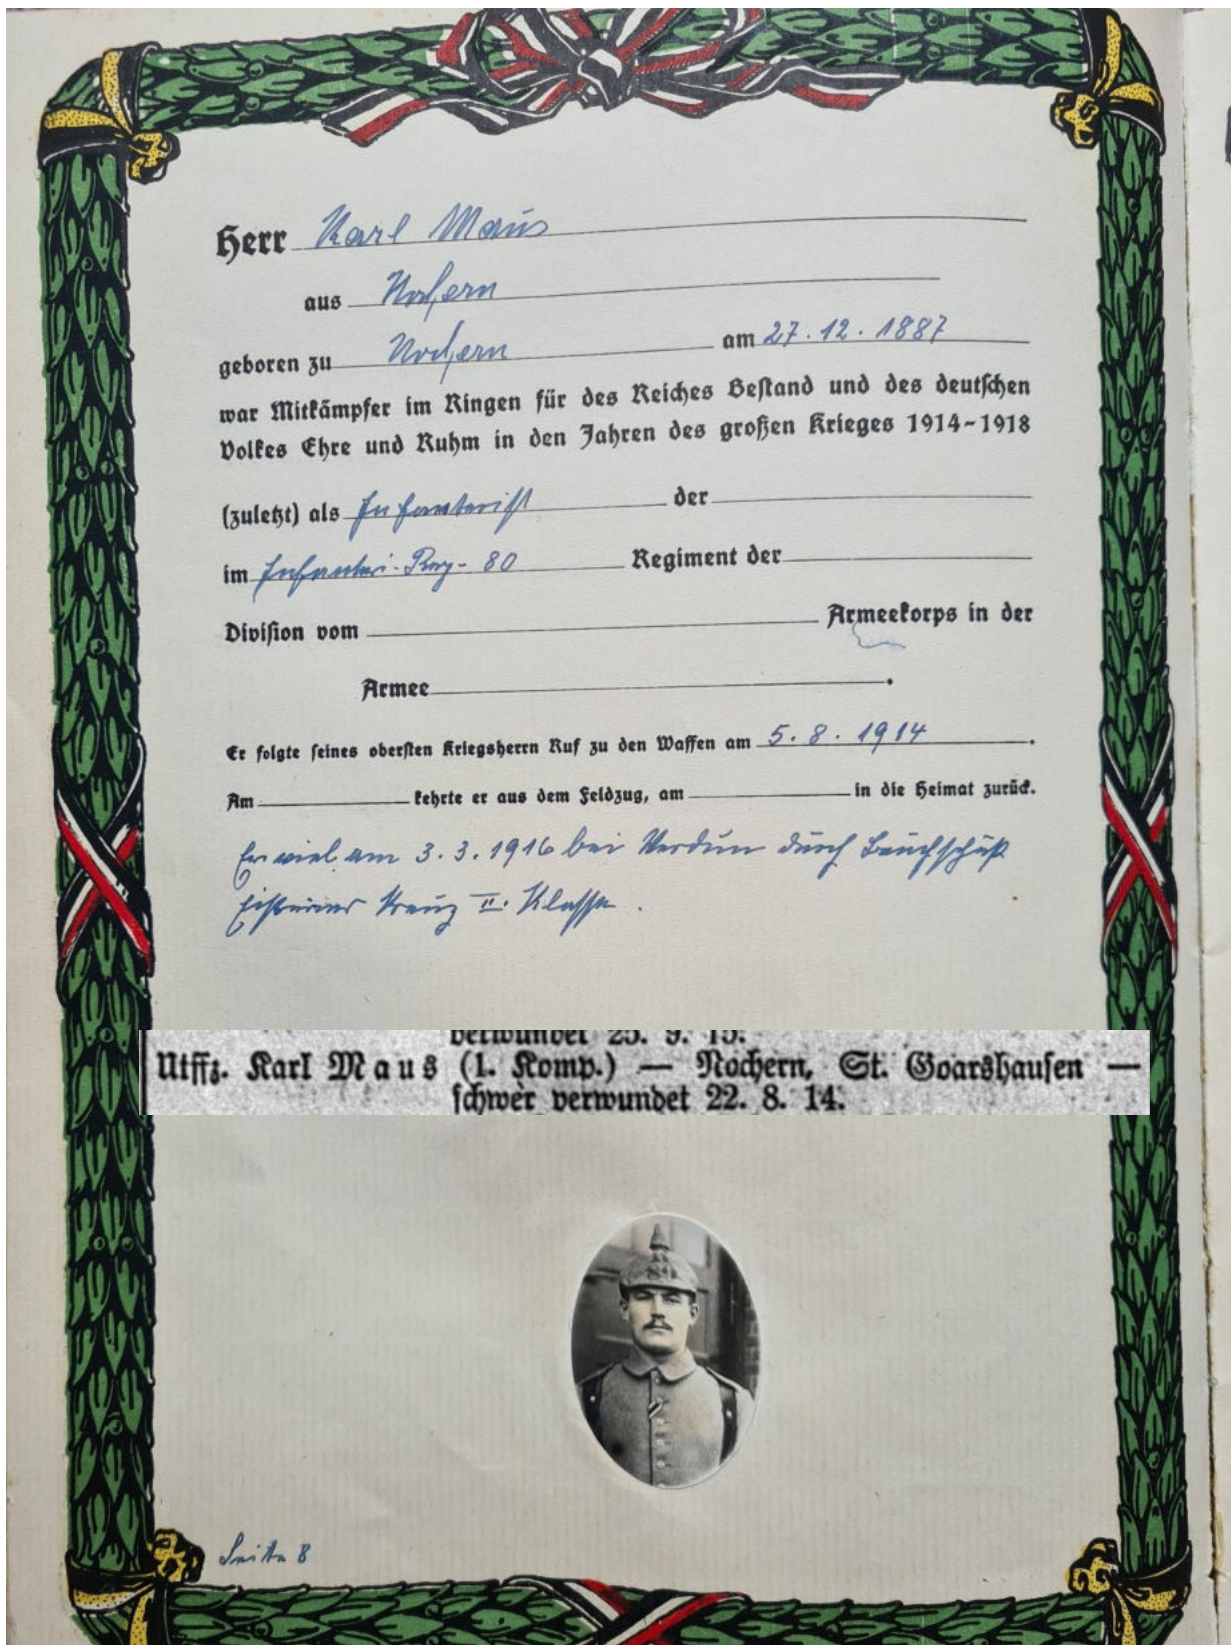 Herr Karl Maus
aus Nochern
geboren zu Nochern am 27.12.1887
war Mitkämpfer im Ringen für des Reiches Bestand und des deutschen
Volkes Ehre und Ruhm in den Jahren des großen Krieges 1914-1918
(zuletzt) als Infanterist der
im Infanteri-Reg- 80 Regiment der
Division vom Armeekorps in der
Armee .
Er folgte seines obersten Kriegsherrn Ruf zu den Waffen am 5.8.1914 .
Am kehrte er aus dem Feldzug, am in die Heimat zurück.
Er viel am 3.3.1916 bei Verdun durch Bauchschuß
Eisernes Kreuz II. Klasse .
verwundet 25. 9. 15.
Utffz. Karl Maus (1. Komp.) — Nochern, St. Goarshausen —
schwer verwundet 22. 8. 14.
Seite 8